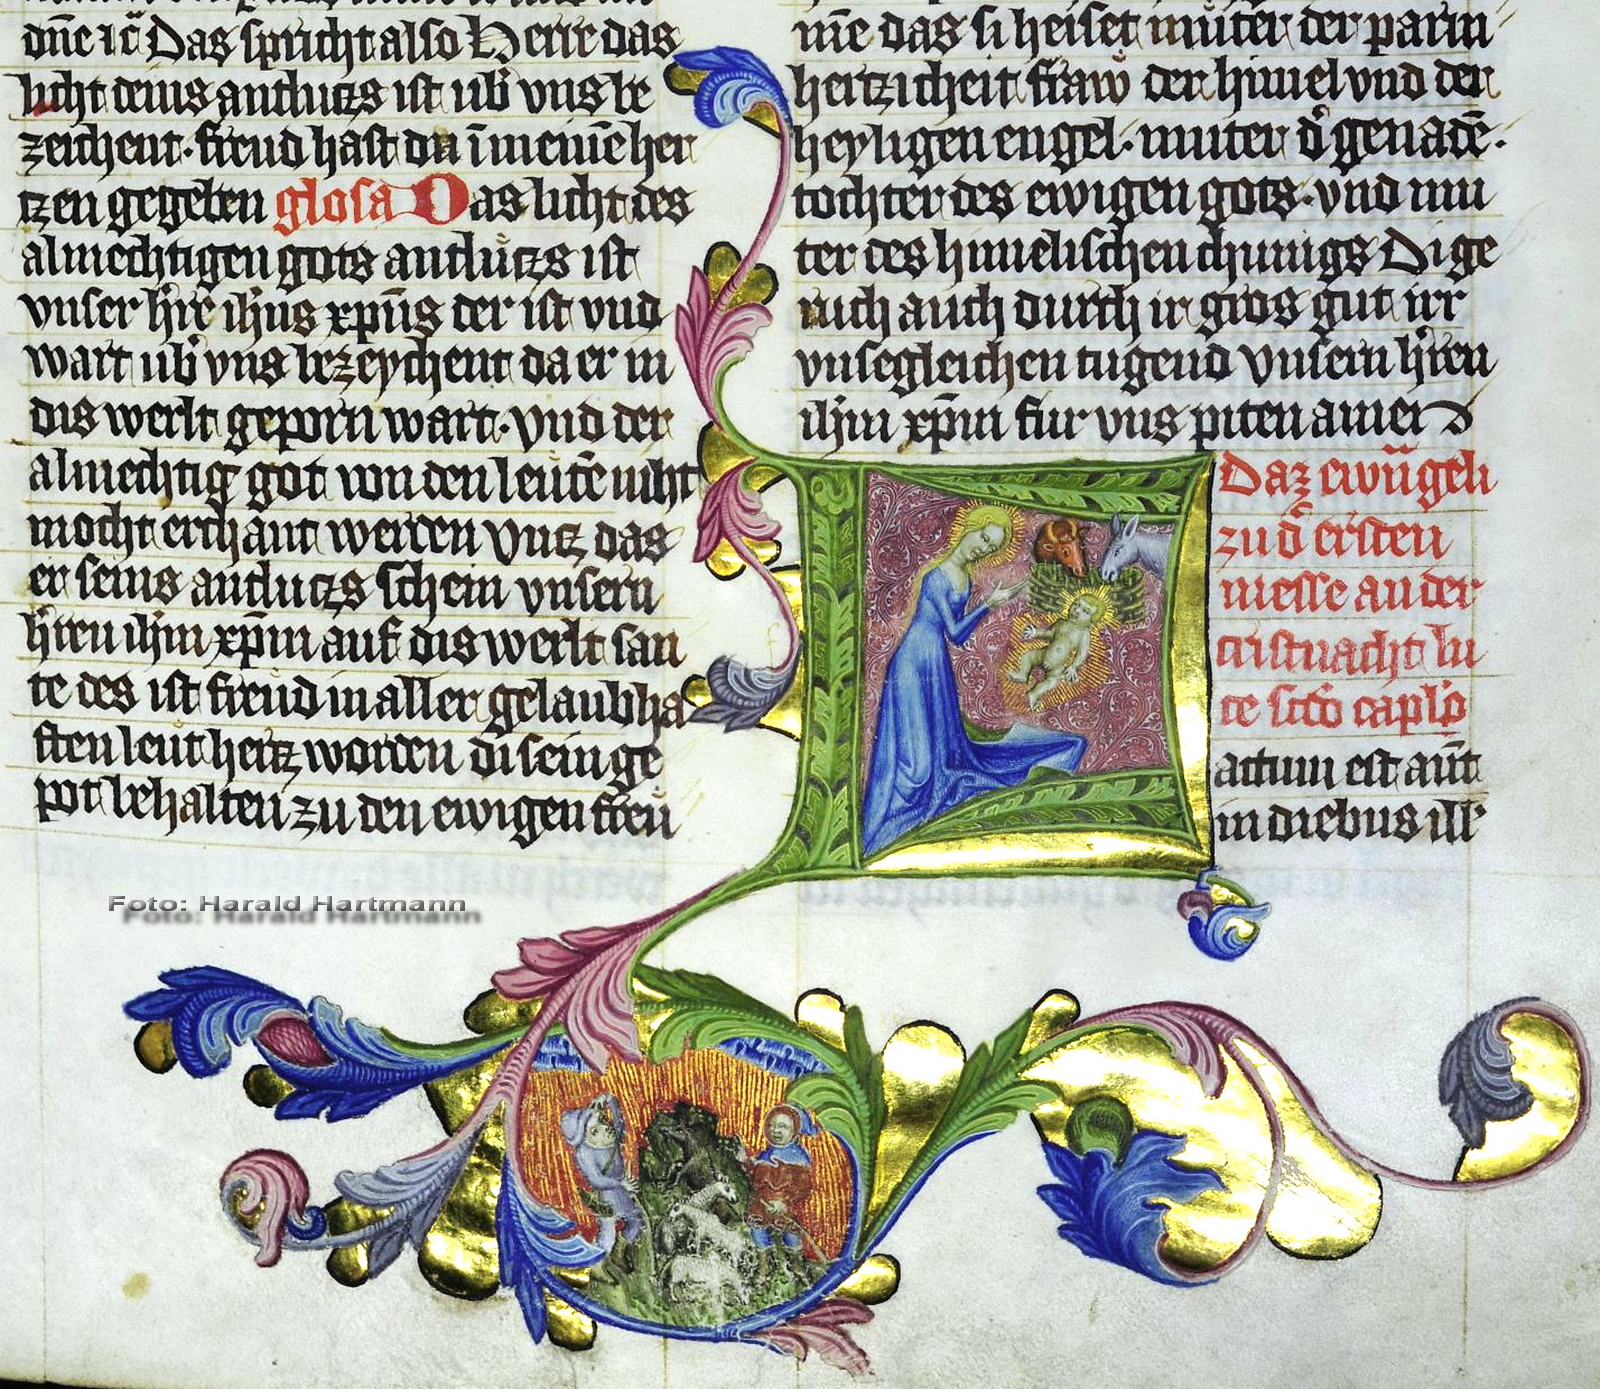 dn̄e ic̄ Das spricht also Herre das
licht deins antlutzs ist ub̓ vns be
zeichent · freud hast du ī meinē her
tzen gegeben glosa Das licht des
almechtigen gots antlutzs ist
vnser h̓re ih̄us xp̄us der ist vnd
wart ub̓ vns bezeychent da er in
dis werlt geporn wart · vnd der
almechtig got von den leutē niht
mocht erchant werden vntz das
er seins antlutzs schein vnsern
h̓ren ih̄m xp̄m auf dis werlt san
te des ist freud in aller gelaubha
ften leut hertz worden di sein ge
pot behalten zu den ewigen freu
me das si heiset muter der parm
hertzicheit fraw der himel vnd der
heyligen engel · muter d̓ genadē ·
tochter des ewigen gots · vnd mu
ter des himelischen chunigs Di ge
ruch auch durch ir gros gut irr
vnsegleichen tugend vnsern h̓ren
ih̄m xp̄m fur vns piten amen
Daz ewūgeli
zu d̓ ersten
messe an der
cristnacht lu
ce sc̄do caplo
actum est aūt
in diebus ill̓
Foto: Harald Hartmann